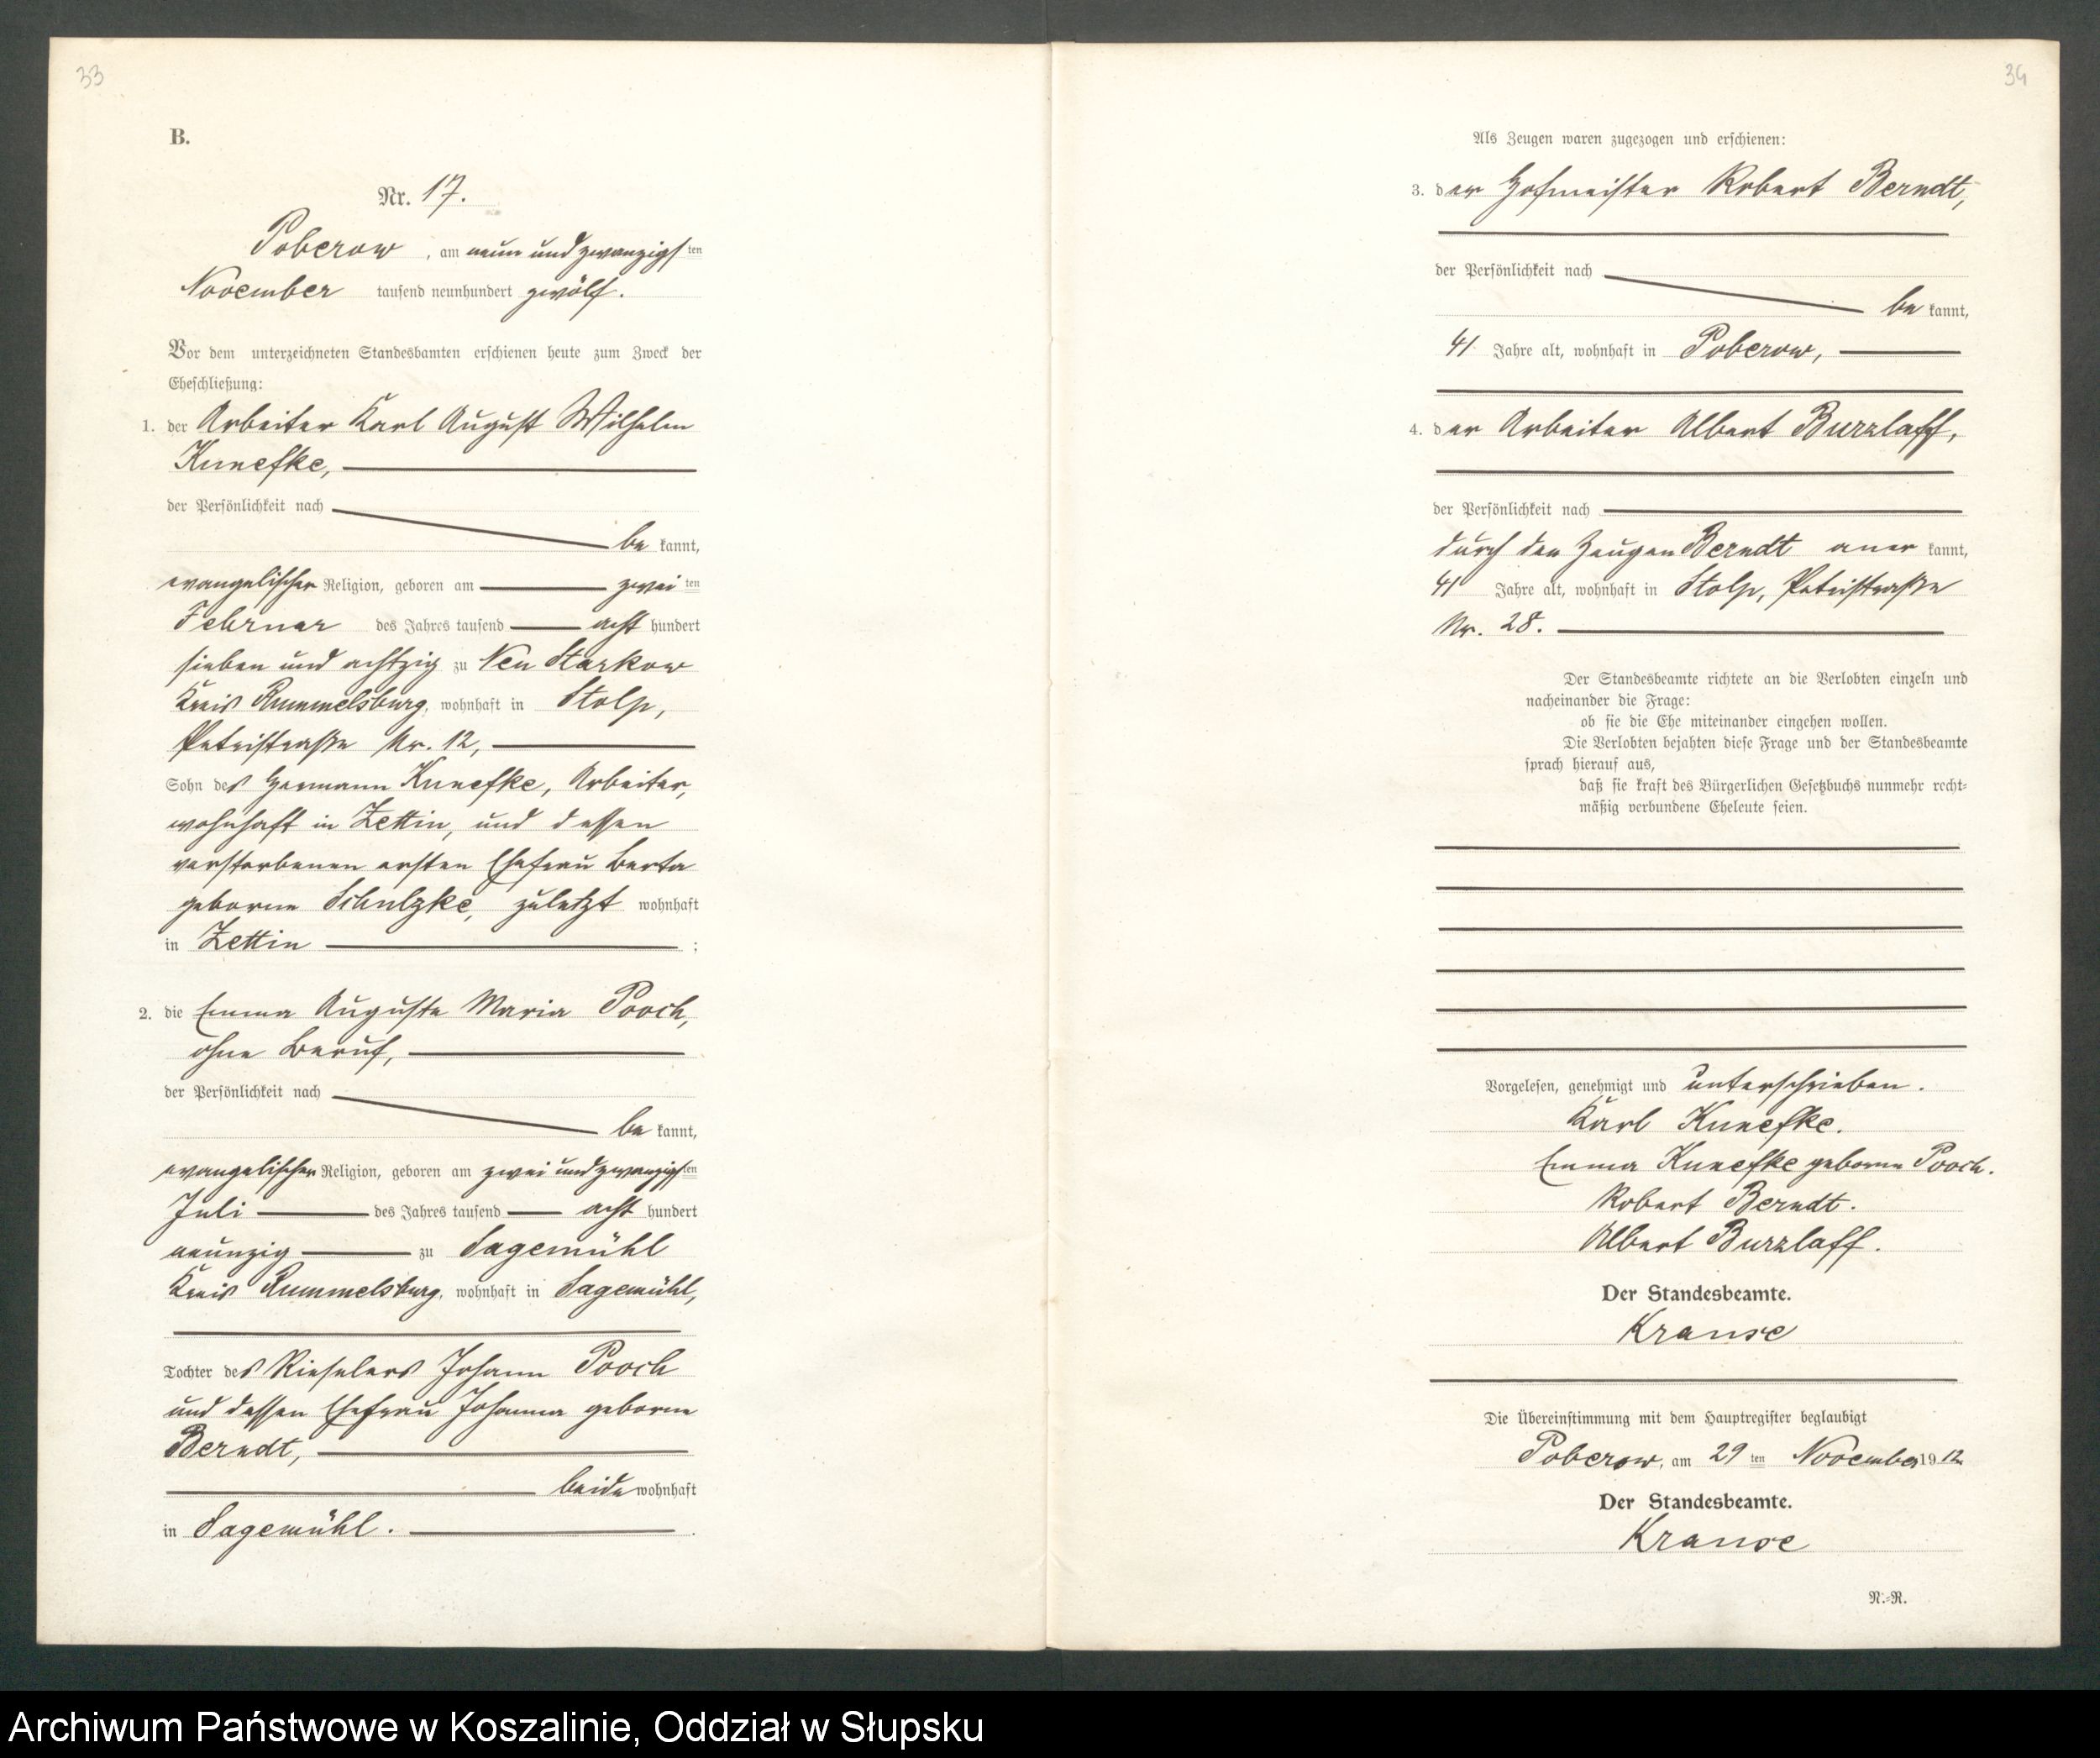 33
B.
Nr. 17.
Poberow, am neun und zwanzigsten
November tausend neunhundert zwölf.
Vor dem unterzeichneten Standesbamten erschienen heute zum Zweck der
Eheschließung:
1. der Arbeiter Karl August Wilhelm
Kunefke,
der Persönlichkeit nach
be kannt,
evangelischer Religion, geboren am zwei ten
Februar des Jahres tausend acht hundert
sieben und achtzig zu Neu Starkow
Kreis Rummelsburg, wohnhaft in Stolp,
Petristraße Nr. 12,
Sohn des Hermann Kunefke, Arbeiter,
wohnhaft in Zettin, und dessen
verstorbenen ersten Ehefrau Berta
geborne Schulzke, zuletzt wohnhaft
in Zettin ;
2. die Emma Auguste Maria Pooch,
ohne Beruf,
der Persönlichkeit nach
be kannt,
evangelischer Religion, geboren am zwei und zwanzigsten
Juli des Jahres tausend acht hundert
neunzig zu Sagemühl
Kreis Rummelsburg, wohnhaft in Sagemühl,
Tochter des Rieselers Johann Pooch
und dessen Ehefrau Johanna geborne
Berndt,
beide wohnhaft
in Sagemühl.
34
Als Zeugen waren zugezogen und erschienen:
3. der Hofmeister Robert Berndt,
der Persönlichkeit nach
be kannt,
41 Jahre alt, wohnhaft in Poberow,
4. der Arbeiter Albert Burzlaff,
der Persönlichkeit nach
durch den Zeugen Berndt aner kannt,
41 Jahre alt, wohnhaft in Stolp, Petristraße
Nr. 28.
Der Standesbeamte richtete an die Verlobten einzeln und
nacheinander die Frage:
ob sie die Ehe miteinander eingehen wollen.
Die Verlobten bejahten diese Frage und der Standesbeamte
sprach hierauf aus,
daß sie kraft des Bürgerlichen Gesetzbuchs nunmehr recht-
mäßig verbundene Eheleute seien.
Vorgelesen, genehmigt und unterschrieben.
Karl Kunefke.
Emma Kunefke geborne Pooch.
Robert Berndt.
Albert Burzlaff.
Der Standesbeamte.
Krause
Die Übereinstimmung mit dem Hauptregister beglaubigt
Poberow, am 29 ten November 1912
Der Standesbeamte.
Krause
N.-R.
Archiwum Państwowe w Koszalinie, Oddział w Słupsku